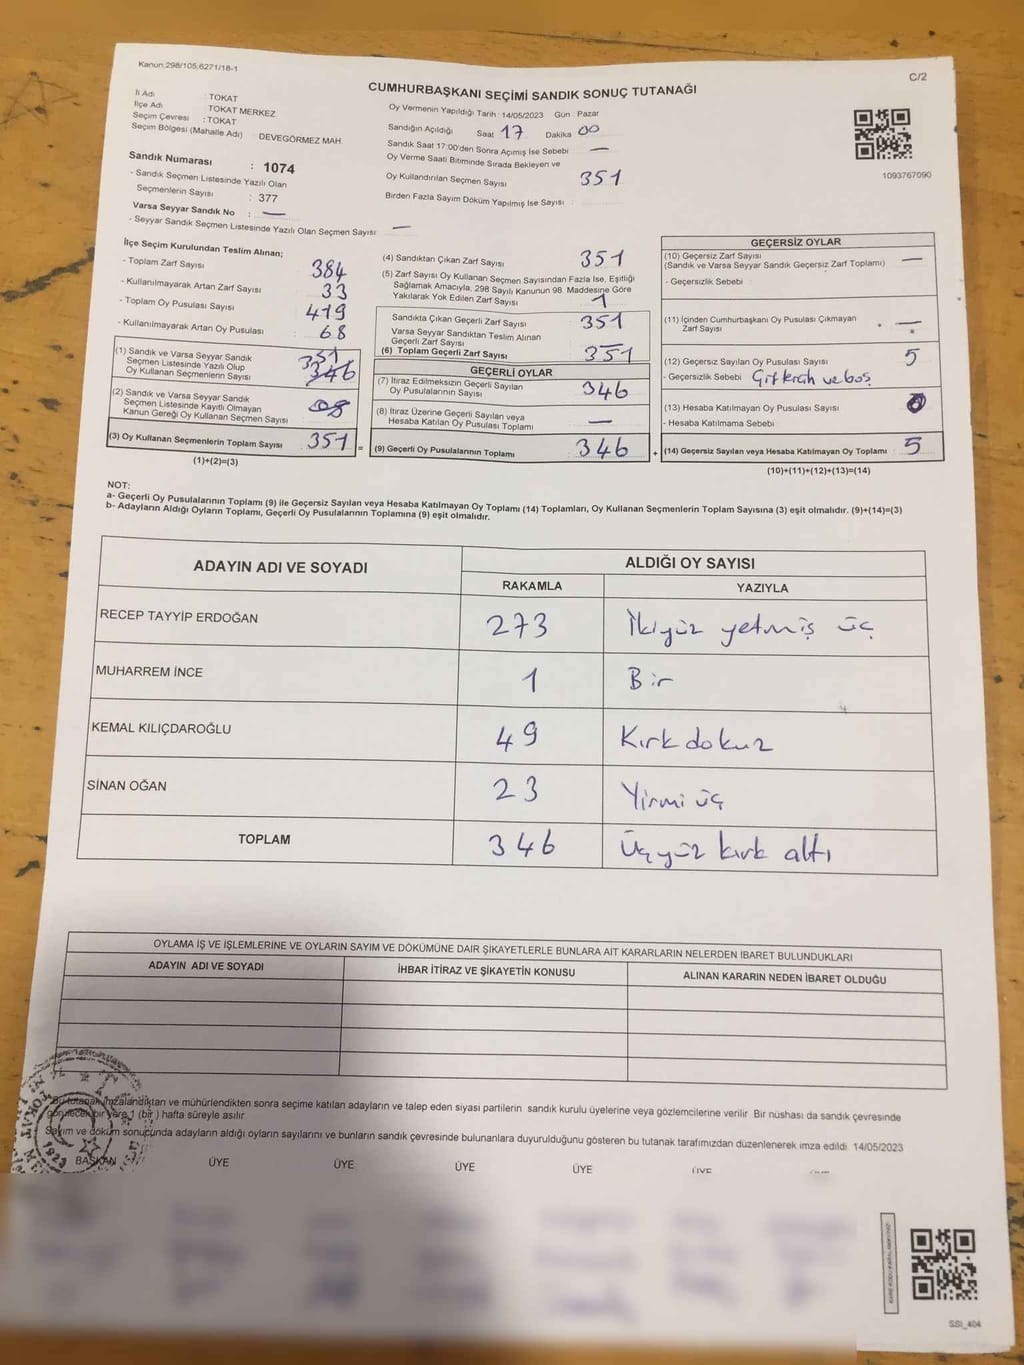 Kanun.298/105,6271/18-1
C/2
CUMHURBAŞKANI SEÇİMİ SANDIK SONUÇ TUTANAĞI
İl Adı : TOKAT
İlçe Adı : TOKAT MERKEZ
Seçim Çevresi : TOKAT
Seçim Bölgesi (Mahalle Adı) : DEVEGÖRMEZ MAH.
Sandık Numarası : 1074
- Sandık Seçmen Listesinde Yazılı Olan
Seçmenlerin Sayısı : 377
Varsa Seyyar Sandık No : —
- Seyyar Sandık Seçmen Listesinde Yazılı Olan Seçmen Sayısı —
Oy Vermenin Yapıldığı Tarih : 14/05/2023 Gün : Pazar
Sandığın Açıldığı Saat 17 Dakika 00
Sandık Saat 17:00'den Sonra Açımış İse Sebebi —
Oy Verme Saati Bitiminde Sırada Bekleyen ve
Oy Kullandırılan Seçmen Sayısı 351
Birden Fazla Sayım Döküm Yapılmış İse Sayısı :
1093767090
İlçe Seçim Kurulundan Teslim Alınan;
- Toplam Zarf Sayısı 384
- Kullanılmayarak Artan Zarf Sayısı 33
- Toplam Oy Pusulası Sayısı 419
- Kullanılmayarak Artan Oy Pusulası : 68
(1) Sandık ve Varsa Seyyar Sandık
Seçmen Listesinde Yazılı Olup
Oy Kullanan Seçmenlerin Sayısı 351 346
(2) Sandık ve Varsa Seyyar Sandık
Seçmen Listesinde Kayıtlı Olmayan
Kanun Gereği Oy Kullanan Seçmen Sayısı
(3) Oy Kullanan Seçmenlerin Toplam Sayısı 351 =
(1)+(2)=(3)
(4) Sandıktan Çıkan Zarf Sayısı 351
(5) Zarf Sayısı Oy Kullanan Seçmen Sayısından Fazla İse, Eşitliği
Sağlamak Amacıyla, 298 Sayılı Kanunun 98. Maddesine Göre
Yakılarak Yok Edilen Zarf Sayısı
Sandıkta Çıkan Geçerli Zarf Sayısı 351
Varsa Seyyar Sandıktan Teslim Alınan
Geçerli Zarf Sayısı
(6) Toplam Geçerli Zarf Sayısı 351
GEÇERLİ OYLAR
(7) İtiraz Edilmeksizin Geçerli Sayılan
Oy Pusulalarının Sayısı 346
(8) İtiraz Üzerine Geçerli Sayılan veya
Hesaba Katılan Oy Pusulası Toplamı —
(9) Geçerli Oy Pusulalarının Toplamı 346 +
GEÇERSİZ OYLAR
(10) Geçersiz Zarf Sayısı
(Sandık ve Varsa Seyyar Sandık Geçersiz Zarf Toplamı) —
- Geçersizlik Sebebi
(11) İçinden Cumhurbaşkanı Oy Pusulası Çıkmayan
Zarf Sayısı —
(12) Geçersiz Sayılan Oy Pusulası Sayısı 5
- Geçersizlik Sebebi
(13) Hesaba Katılmayan Oy Pusulası Sayısı
- Hesaba Katılmama Sebebi
(14) Geçersiz Sayılan veya Hesaba Katılmayan Oy Toplamı 5
(10)+(11)+(12)+(13)=(14)
NOT:
a- Geçerli Oy Pusulalarının Toplamı (9) ile Geçersiz Sayılan veya Hesaba Katılmayan Oy Toplamı (14) Toplamları, Oy Kullanan Seçmenlerin Toplam Sayısına (3) eşit olmalıdır. (9)+(14)=(3)
b- Adayların Aldığı Oyların Toplamı, Geçerli Oy Pusulalarının Toplamına (9) eşit olmalıdır.
ADAYIN ADI VE SOYADI
ALDIĞI OY SAYISI
RAKAMLA YAZIYLA
RECEP TAYYİP ERDOĞAN 273 İkiyüz yetmiş üç
MUHARREM İNCE 1 Bir
KEMAL KILIÇDAROĞLU 49 Kırk dokuz
SİNAN OĞAN 23 Yirmi üç
TOPLAM 346 Üçyüz kırk altı
OYLAMA İŞ VE İŞLEMLERİNE VE OYLARIN SAYIM VE DÖKÜMÜNE DAİR ŞİKAYETLERLE BUNLARA AİT KARARLARIN NELERDEN İBARET BULUNDUKLARI
ADAYIN ADI VE SOYADI İHBAR İTİRAZ VE ŞİKAYETİN KONUSU ALINAN KARARIN NEDEN İBARET OLDUĞU
Bu tutanak imzalandıktan ve mühürlendikten sonra seçime katılan adayların ve talep eden siyasi partilerin sandık kurulu üyelerine veya gözlemcilerine verilir. Bir nüshası da sandık çevresinde
görülecek bir yere 1 (bir ) hafta süreyle asılır.
Sayım ve döküm sonucunda adayların aldığı oyların sayılarını ve bunların sandık çevresinde bulunanlara duyurulduğunu gösteren bu tutanak tarafımızdan düzenlenerek imza edildi. 14/05/2023
BAŞKAN ÜYE ÜYE ÜYE ÜYE ÜYE
SSI_404